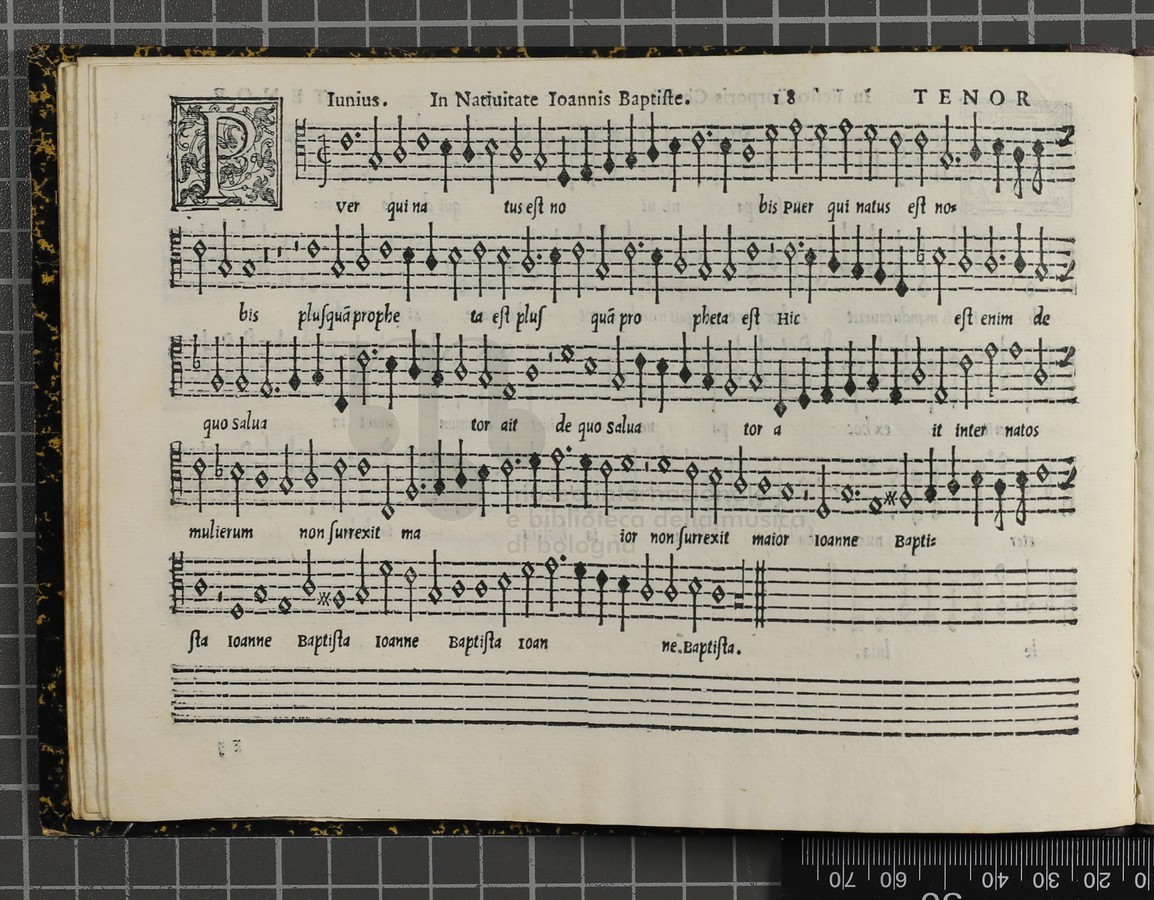 Iunius. In Natiuitate Ioannis Baptiſte. 18 TENOR
P
ver qui na tus eſt no bis Puer qui natus eſt no⸗
bis pluſquã prophe ta eſt pluſ quã pro pheta eſt Hic eſt enim de
quo Salua tor ait de quo Salua tor a it inter natos
mulierum non ſurrexit ma ior non ſurrexit maior Ioanne Bapti⸗
ſta Ioanne Baptiſta Ioanne Baptiſta Ioan ne.Baptiſta.
e biblioteca della musica
di bologna
70 60 40 30 20 10